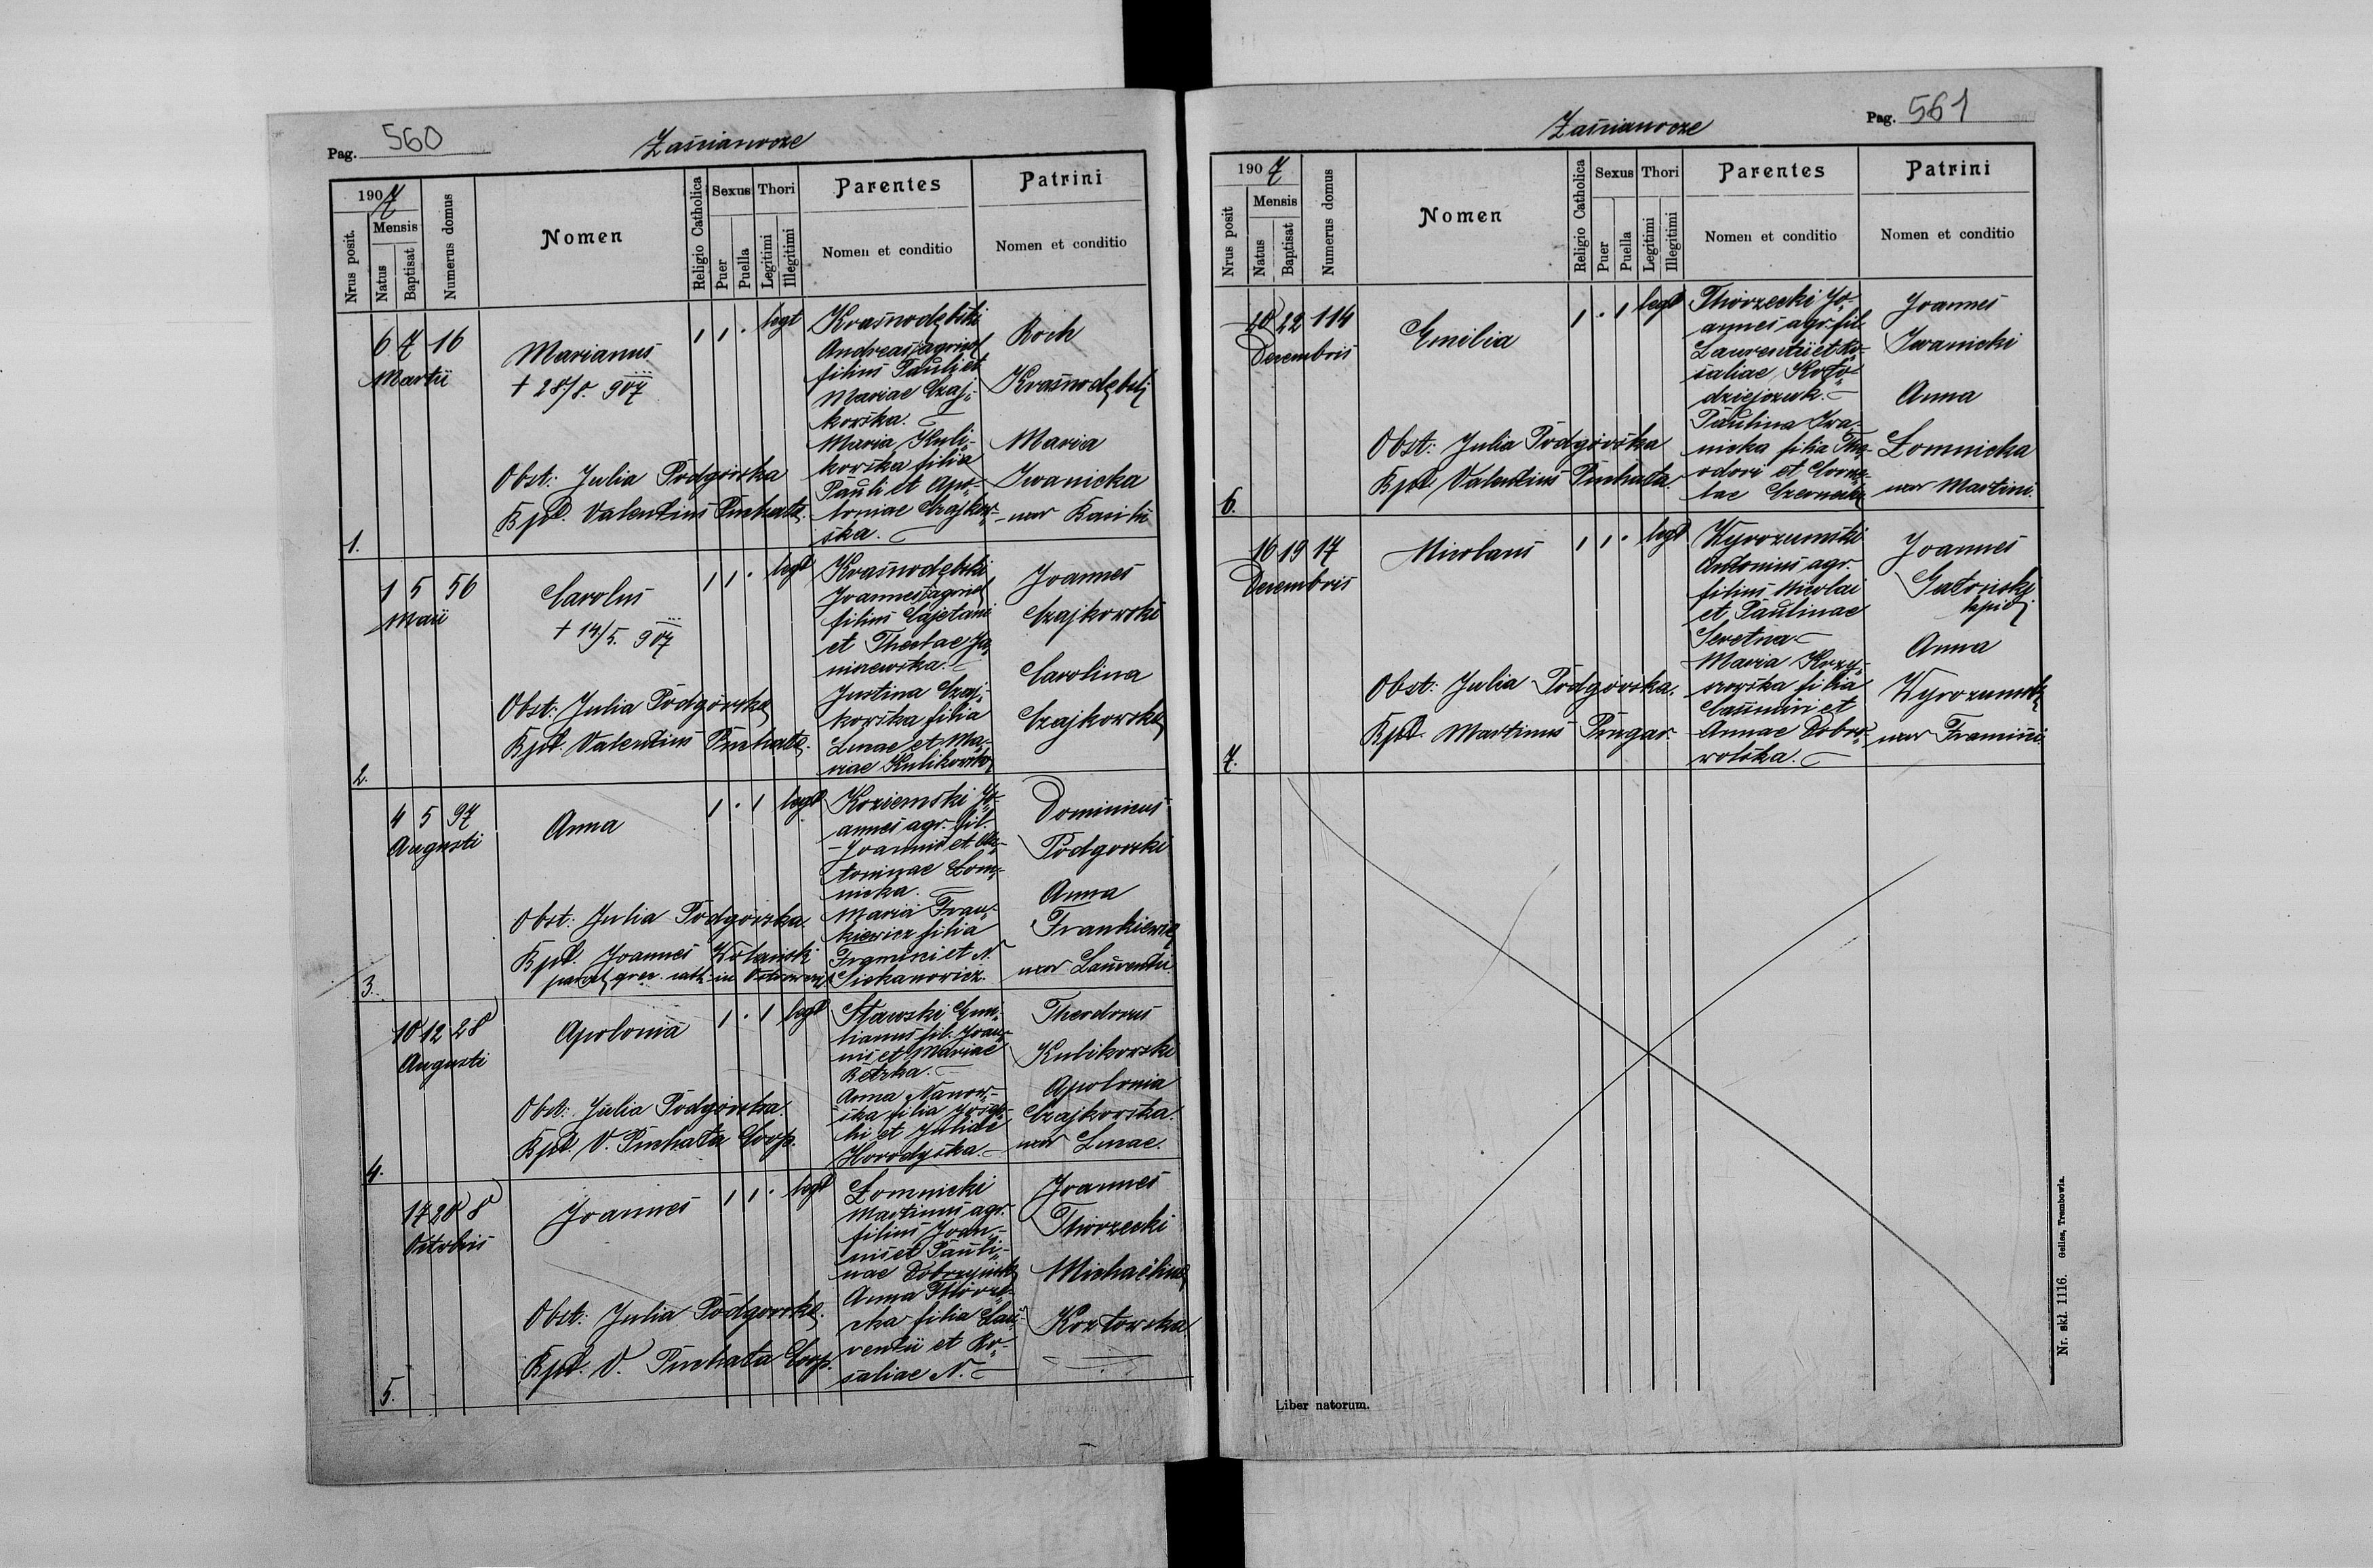 Pag. 560
Zaścianocze
1907
Nrus posit.
Mensis
Natus
Baptisat
Numerus domus
Nomen
Religio Catholica
Sexus
Puer
Puella
Thori
Legitimi
Illegitimi
Parentes
Nomen et conditio
Patrini
Nomen et conditio
1.
6 7 16
Martii
Marianus
+ 28/8. 907
Obst: Julia Podgórska
Bpt. Valentinus Puchała.
1 1 · legt
Krasnodębski
Andreas agric
filius Pauli et
Mariae Czaj-
kowska.
Maria Kuli-
kowska filia
Pauli et Apo-
loniae Czajkow-
ska.
Roch
Krasnodębski
Maria
Iwanicka
uxor Basilii
2.
1 5 56
Maii
Carolus
+ 14/5. 907
Obst: Julia Podgórska
Bpt. Valentinus Puchała.
1 1 · legt
Krasnodębski
Joannes agric
filius Cajetani
et Theclae Ja-
niszewska.
Justina Czaj-
kowska filia
Lucae et Ma-
riae Kulikowska
Joannes
Czajkowski
Carolina
Czajkowska
3.
4 5 97
Augusti
Anna
Obst: Julia Podgórska.
Bpt. Joannes
gr. cath. in
1 · 1 legt
Koziemski Jo-
annes agr. fil.
Joannis et An-
toninae Łom-
nicka.
Maria Fran-
kiewicz filia
Francisci et N.
Sichanowicz.
Dominicus
Podgorski
Anna
Frankiewicz
uxor Laurentii
4.
10 12 28
Augusti
Apolonia
Obst: Julia Podgórska.
Bpt. V. Puchała Coop.
1 · 1 legt
Stawski Emi-
lianus fil. Joan-
nis et Mariae
Anna Nanow-
ska filia
et Juliae
Horodyska.
Theodorus
Kulikowski
Apolonia
Czajkowska.
uxor Lucae.
5.
17 20 8
Octobris
Joannes
Obst: Julia Podgorska.
Bpt. V. Puchała Coop.
1 1 · legt
Łomnicki
Martinus agr.
filius Joan-
nis et Pauli-
nae Dobrzyńsk
Anna Thórze-
cka filia Lau-
rentii et Ro-
saliae N.
Joannes
Thórzecki
Michaëlina
Kozłowska
Pag. 561
Zaścianocze
1907
Nrus posit
Mensis
Natus
Baptisat
Numerus domus
Nomen
Religio Catholica
Sexus
Puer
Puella
Thori
Legitimi
Illegitimi
Parentes
Nomen et conditio
Patrini
Nomen et conditio
6.
20 22 114
Decembris
Emilia
Obst: Julia Podgórska
Bpt. Valentinus Puchała.
1 · 1 legt
Thórzecki Jo-
annes agr. fil.
Laurentii et Ro-
saliae Koło-
dziejczuk.
Paulina Iwa-
nicka filia The-
odori et
Joannes
Iwanicki
Anna
Łomnicka
uxor Martini.
7.
16 19 17
Decembris
Nicolaus
Obst: Julia Podgórska.
Bpt. Martinus Pingar.
1 1 · legt
Wyrozumski
Antonius agr.
filius Nicolai
et Paulinae
Seretna
Maria Krzy-
szowska filia
Casimiri et
Annae Dobro-
wolska.
Joannes
Gatoński
Anna
Wyrozumska
uxor Francisci
Liber natorum.
Nr. skł. 1116. Gelles, Trembowla.